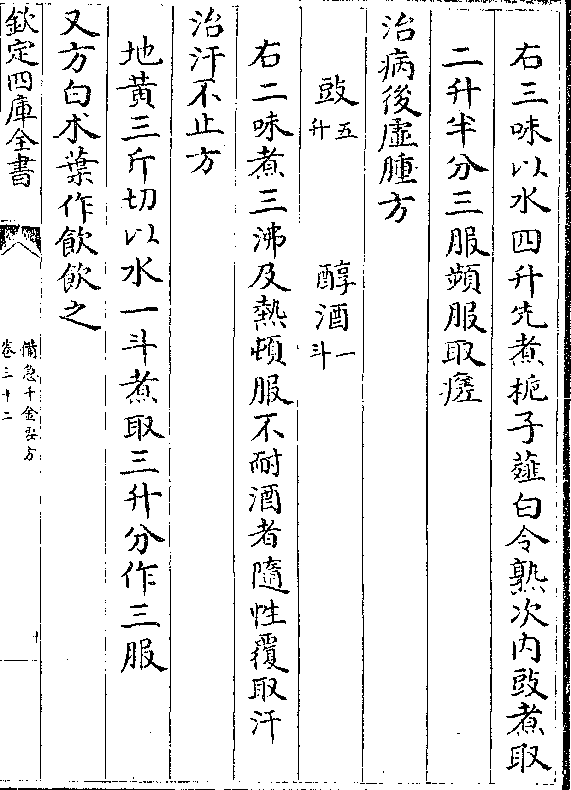 右三味以水四升先煮梔子薤白令熟次内豉煮取
二升半分三服頻服取瘥
治病後虛腫方
豉五升　醇酒一斗
右二味煮三沸及熱頓服不耐酒者隨性覆取汗
治汗不止方
地黃三斤切以水一斗煮取三升分作三服
又方白朮葉作飲飲之
欽定四庫全書
備急千金要方
卷三十二